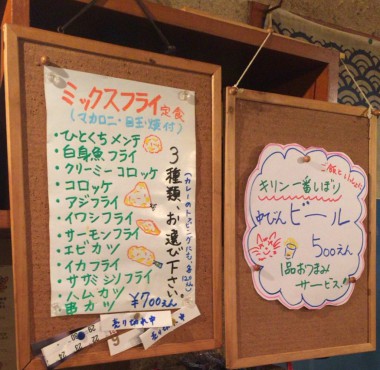 ミックスフライ定食
(マカロニ・目玉焼付)
・ひとくちメンチ
・白身魚フライ
・クリーミーコロッケ
・コロッケ
・アジフライ
・イワシフライ
・サーモンフライ
・エビカツ
・イカフライ
・ササミシソフライ
・ハムカツ
・串カツ
3種類、お選び下さい。
(カレーのトッピングにも、各120えん)
¥700えん
売り切れ中
売り切れ中
ご飯といっしょに
キリン一番しぼり
中びんビール
500えん
1品おつまみ
サービス!!